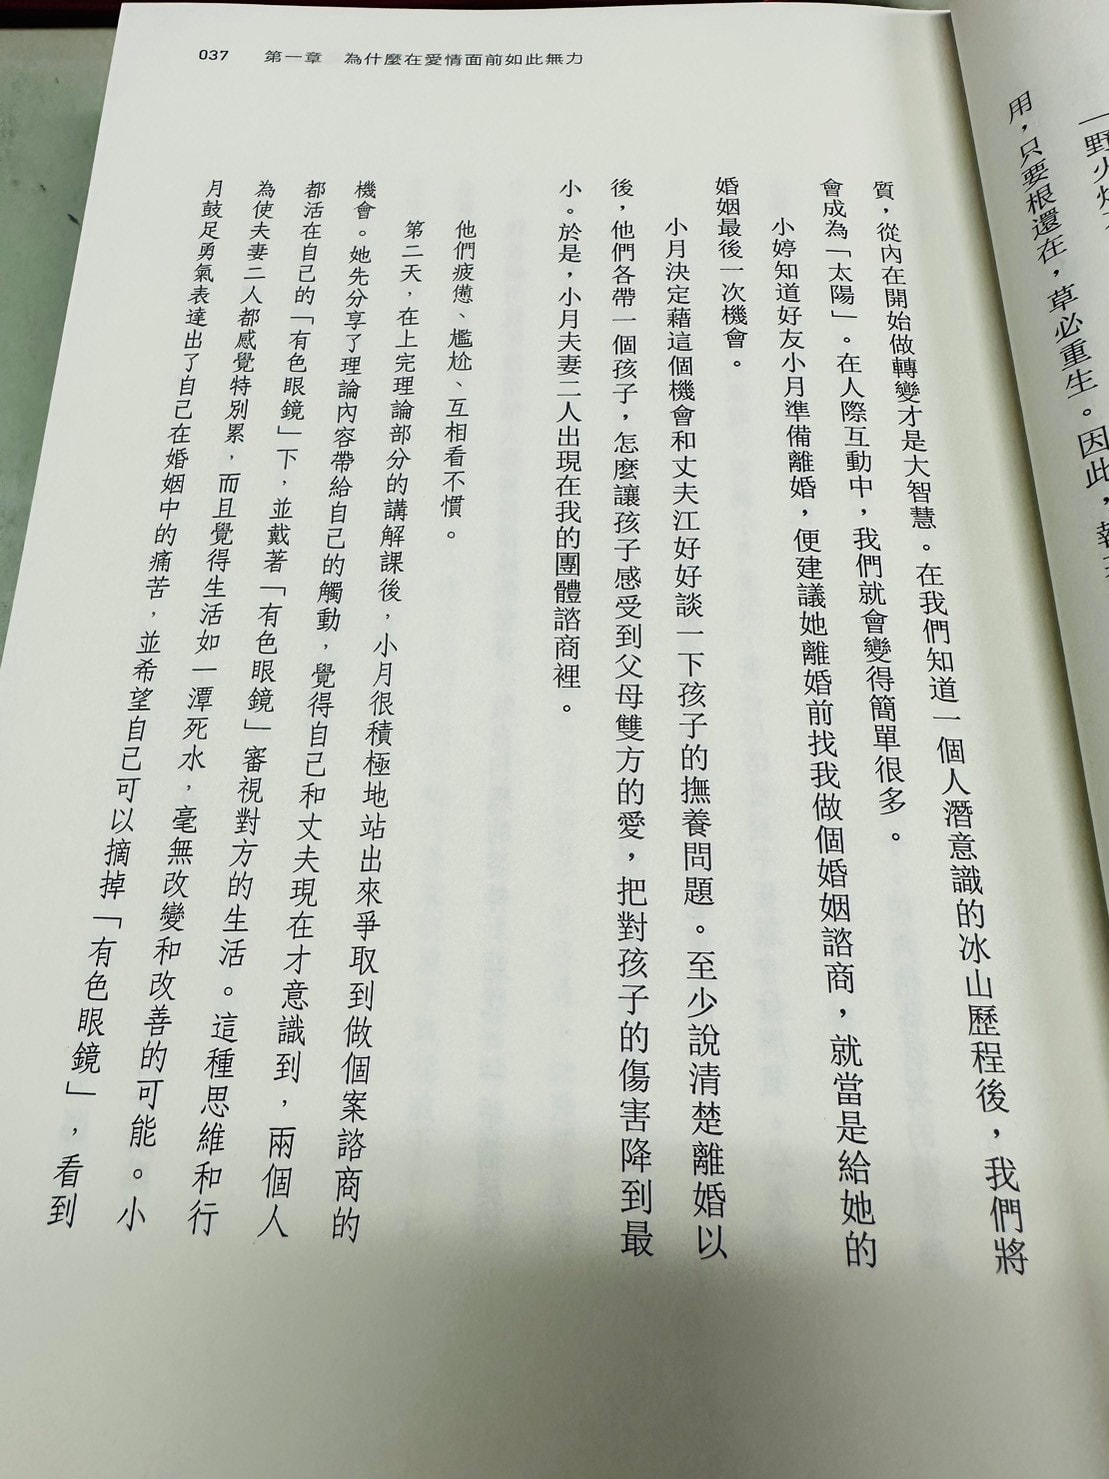 037　第一章　為什麼在愛情面前如此無力
用，只要根還在，草必重生。因此，
質，從內在開始做轉變才是大智慧。在我們知道一個人潛意識的冰山歷程後，我們將
會成為「太陽」。在人際互動中，我們就會變得簡單很多。
小婷知道好友小月準備離婚，便建議她離婚前找我做個婚姻諮商，就當是給她的
婚姻最後一次機會。
小月決定藉這個機會和丈夫江好好談一下孩子的撫養問題。至少說清楚離婚以
後，他們各帶一個孩子，怎麼讓孩子感受到父母雙方的愛，把對孩子的傷害降到最
小。於是，小月夫妻二人出現在我的團體諮商裡。
他們疲憊、尷尬、互相看不慣。
第二天，在上完理論部分的講解課後，小月很積極地站出來爭取到做個案諮商的
機會。她先分享了理論內容帶給自己的觸動，覺得自己和丈夫現在才意識到，兩個人
都活在自己的「有色眼鏡」下，並戴著「有色眼鏡」審視對方的生活。這種思維和行
為使夫妻二人都感覺特別累，而且覺得生活如一潭死水，毫無改變和改善的可能。小
月鼓足勇氣表達出了自己在婚姻中的痛苦，並希望自己可以摘掉「有色眼鏡」，看到